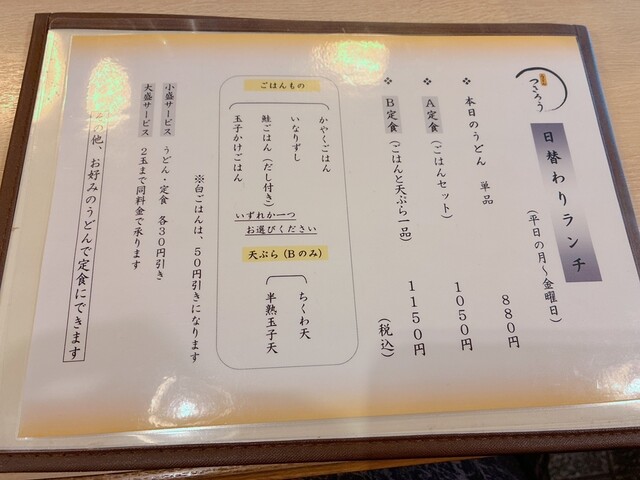 つきろう
日替わりランチ
(平日の月~金曜日)
❖ 本日のうどん 単品 880円
❖ A定食(ごはんセット) 1050円
❖ B定食(ごはんと天ぷら一品) 1150円
(税込)
ごはんもの
かやくごはん
いなりずし
鮭ごはん(だし付き)
玉子かけごはん
いずれか一つ
お選びください
天ぷら(Bのみ)
ちくわ天
半熟玉子天
※白ごはんは、50円引きになります
小盛サービス うどん・定食 各30円引き
大盛サービス 2玉まで同料金で承ります
その他、お好みのうどんで定食にできます